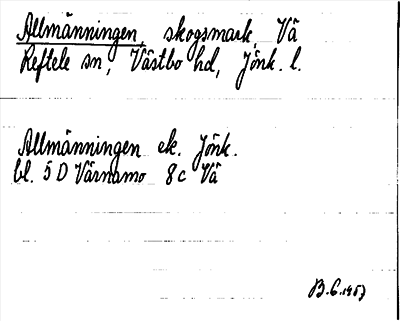 Allmänningen, skogsmark, Vä
Reftele sn, Västbo hd, Jönk. l.
Allmänningen ek. Jönk.
bl. 5 D Värnamo 8 c Vä